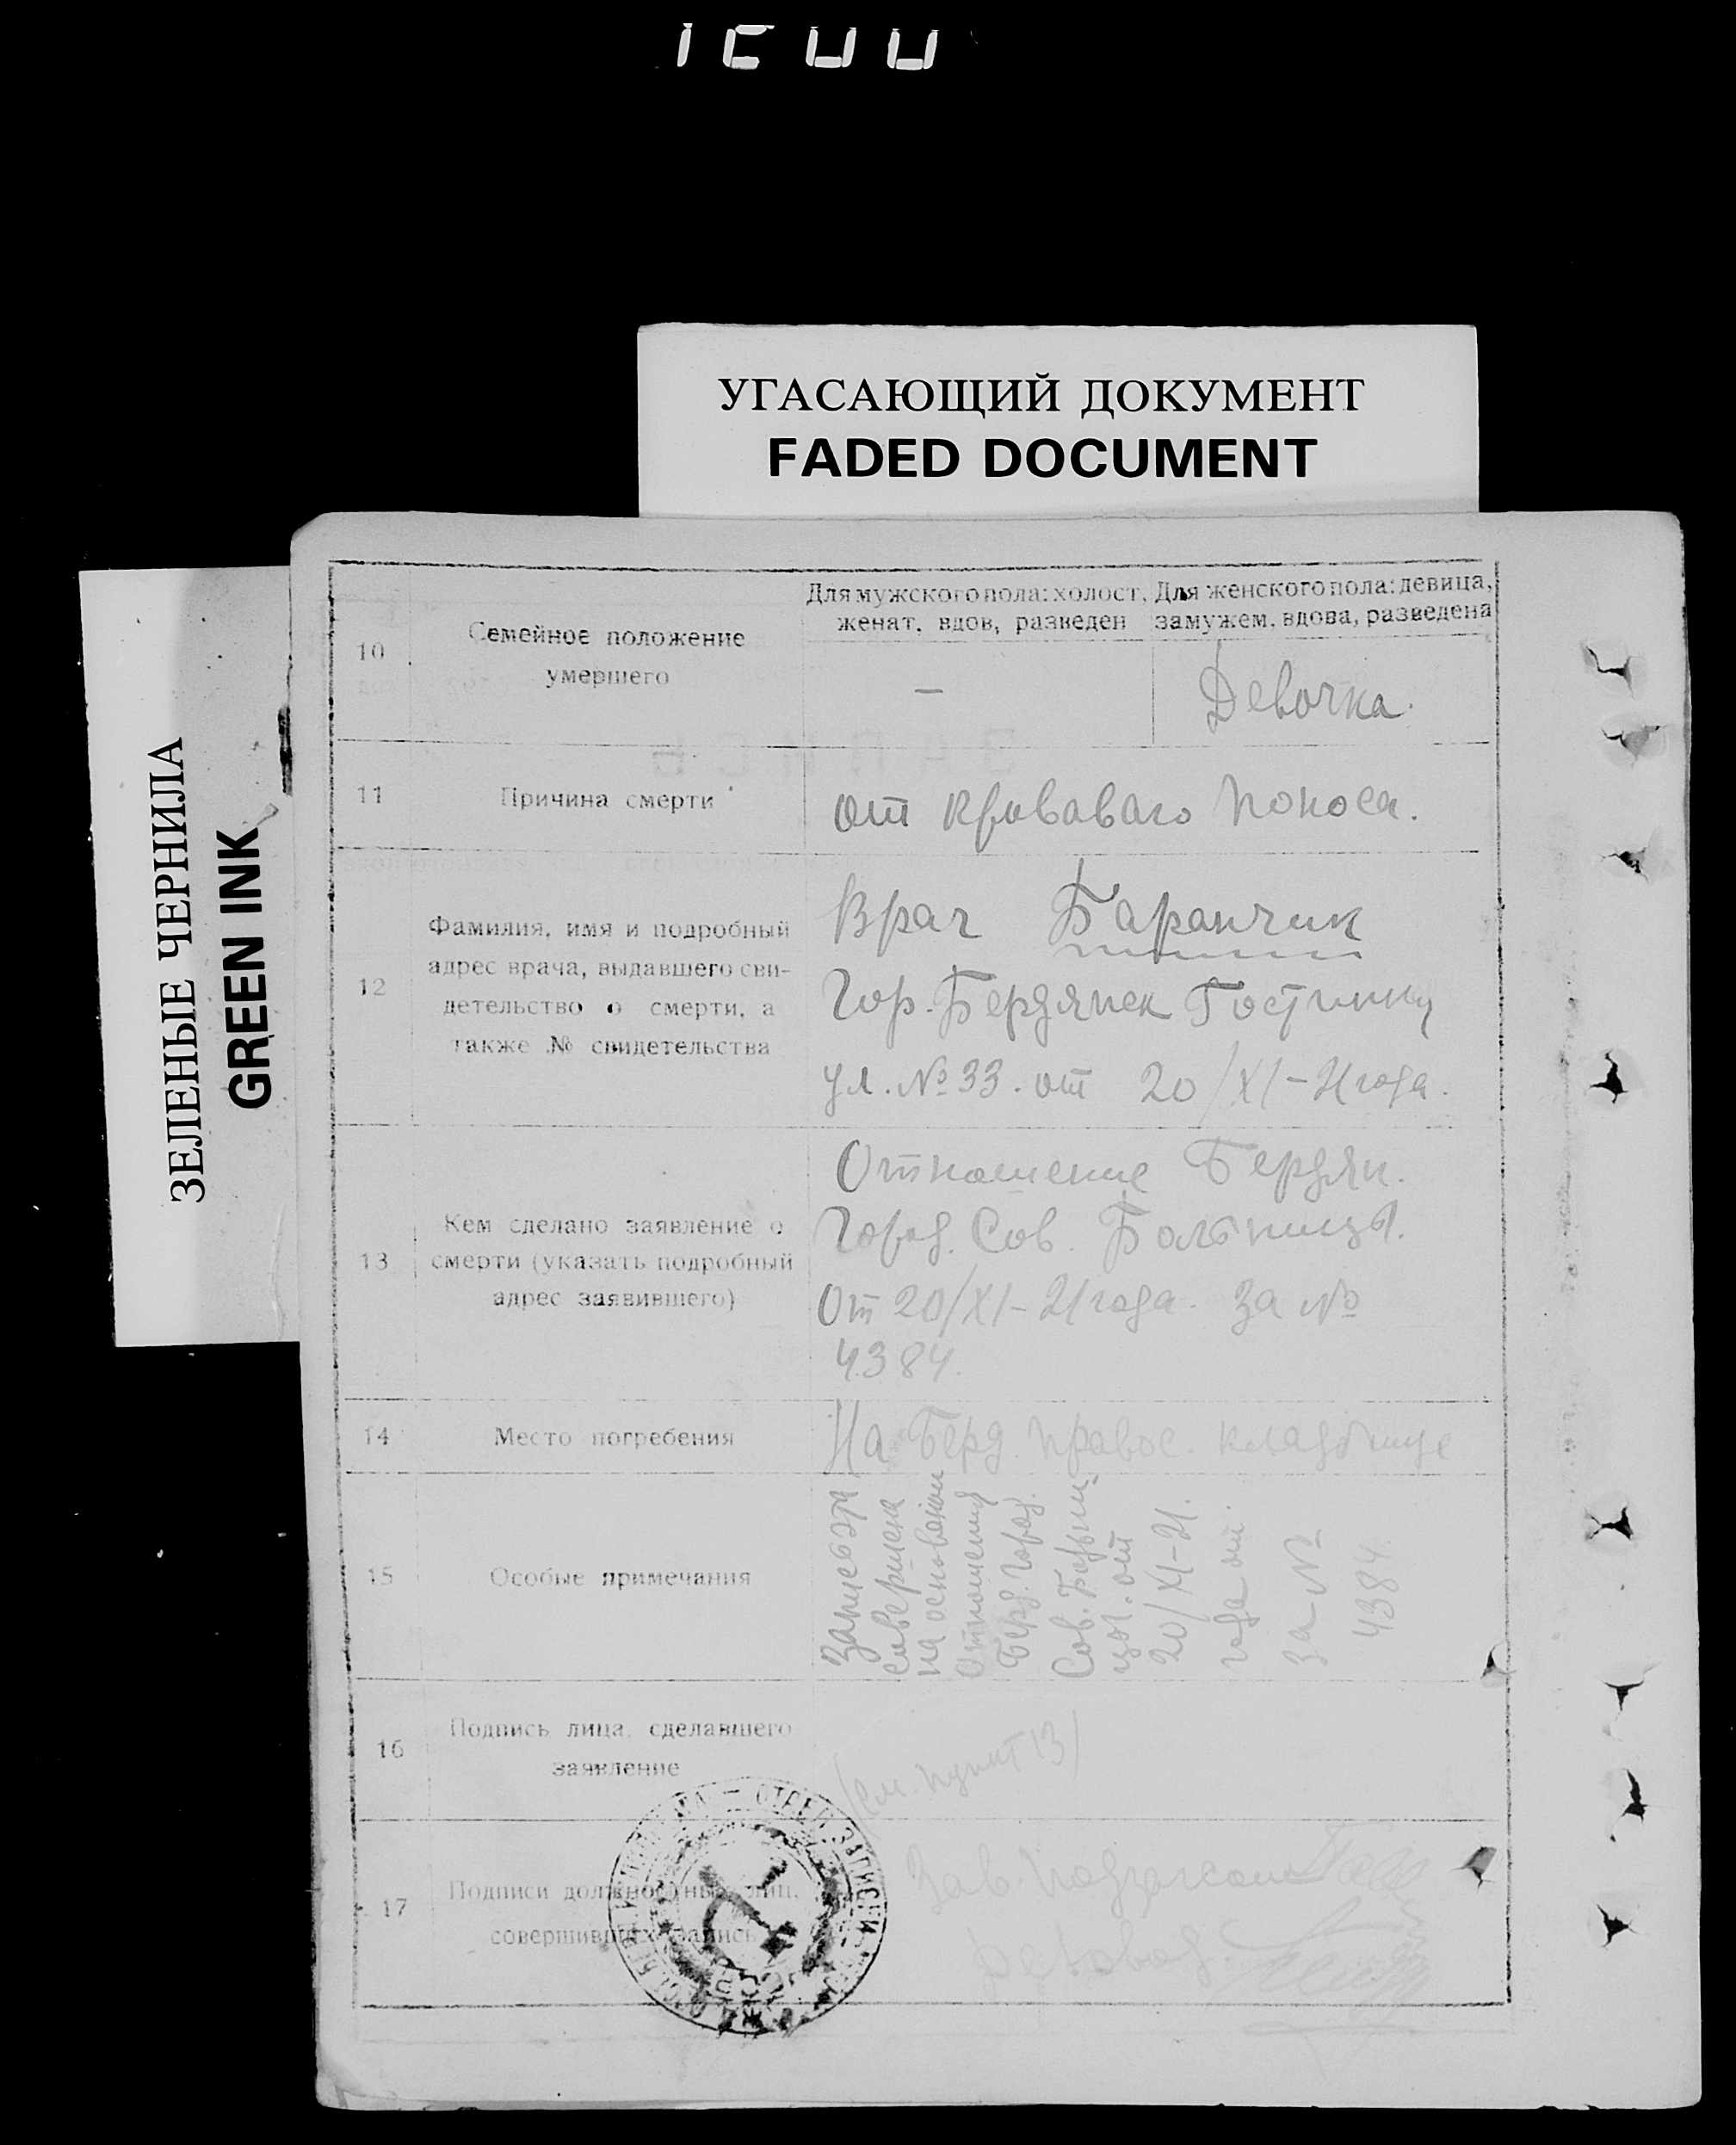 УГАСАЮЩИЙ ДОКУМЕНТ
FADED DOCUMENT
ЗЕЛЕНЫЕ ЧЕРНИЛА
GREEN INK
10
Семейное положение
умершего
Для мужского пола: холост,
женат, вдов, разведен
Для женского пола: девица,
замужем, вдова, разведена
—
Девочка.
11
Причина смерти
от кроваваго поноса.
12
Фамилия, имя и подробный
адрес врача, выдавшего сви-
детельство о смерти, а
также № свидетельства
Врач Баранчик
Гор. Бердянск
ул. № 33. от 20/XI-21 года.
13
Кем сделано заявление о
смерти (указать подробный
адрес заявившего)
Отношение Бердян.
Город. Сов. Больницы.
От 20/XI-21 года. за №
4384.
14
Место погребения
На Берд. правос. кладбище
15
Особые примечания
Запись эта
совершена
на основании
Отношения
Берд. Город.
Сов. Больни
цы. от
20/XI-21.
года
за №
4384.
16
Подпись лица, сделавшего
заявление
/см. пункт 13/
17
Подписи должностных лиц,
совершивших запись
Зав.